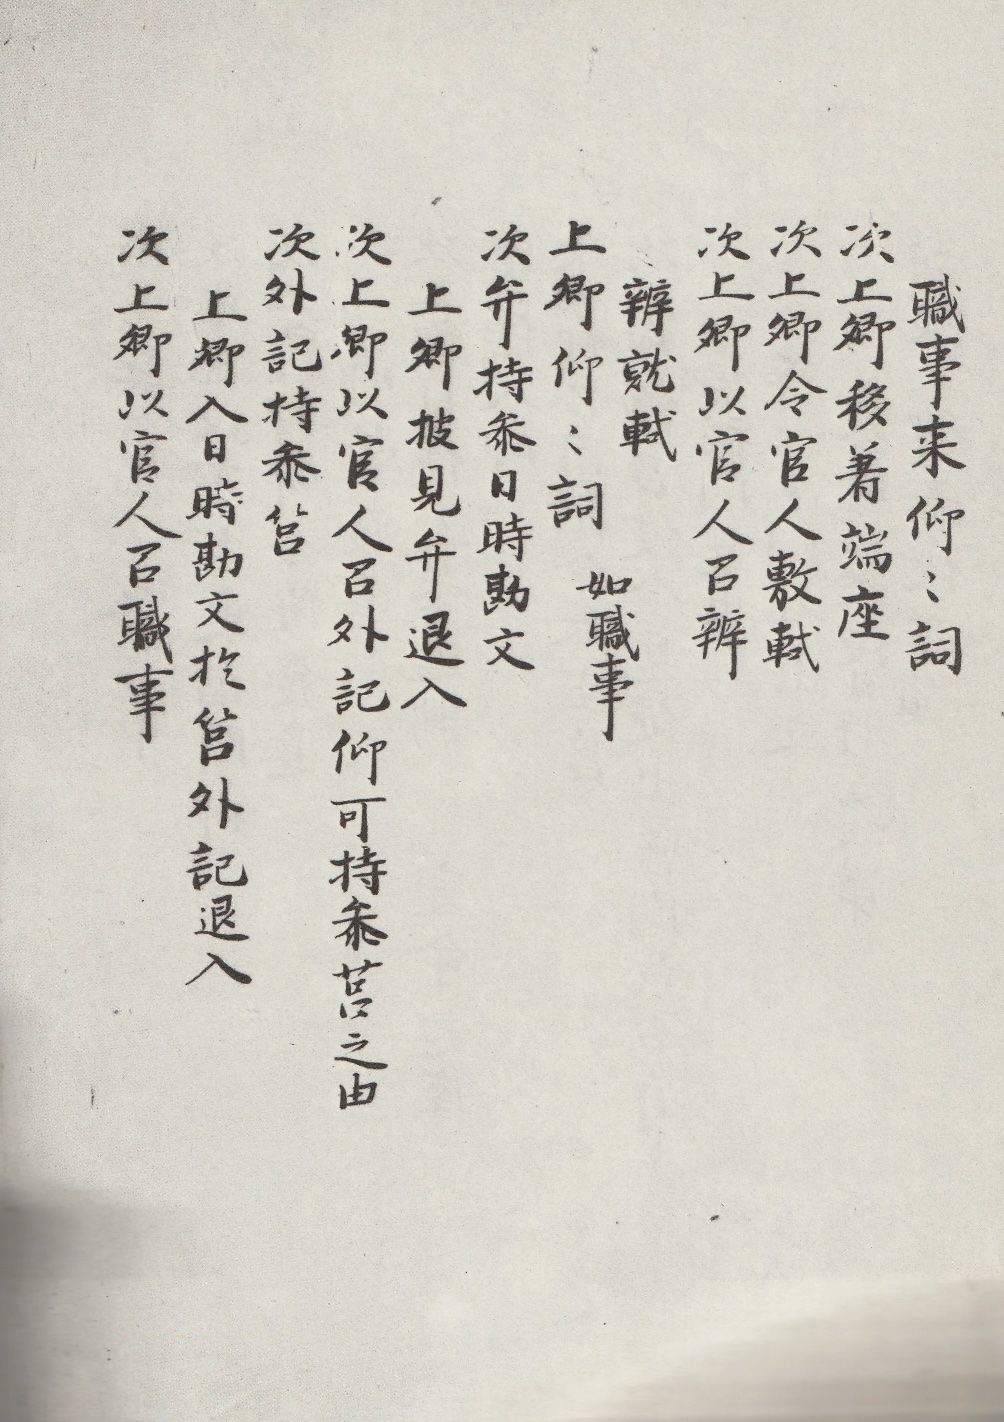 職事来仰〻詞
次上卿移著端座
次上卿令官人敷軾
次上卿以官人召辨
辨就軾
上卿仰〻詞 如職事
次弁持参日時勘文
上卿披見弁退入
次上卿以官人召外記仰可持参莒之由
次外記持参筥
上卿入日時勘文於筥外記退入
次上卿以官人召職事